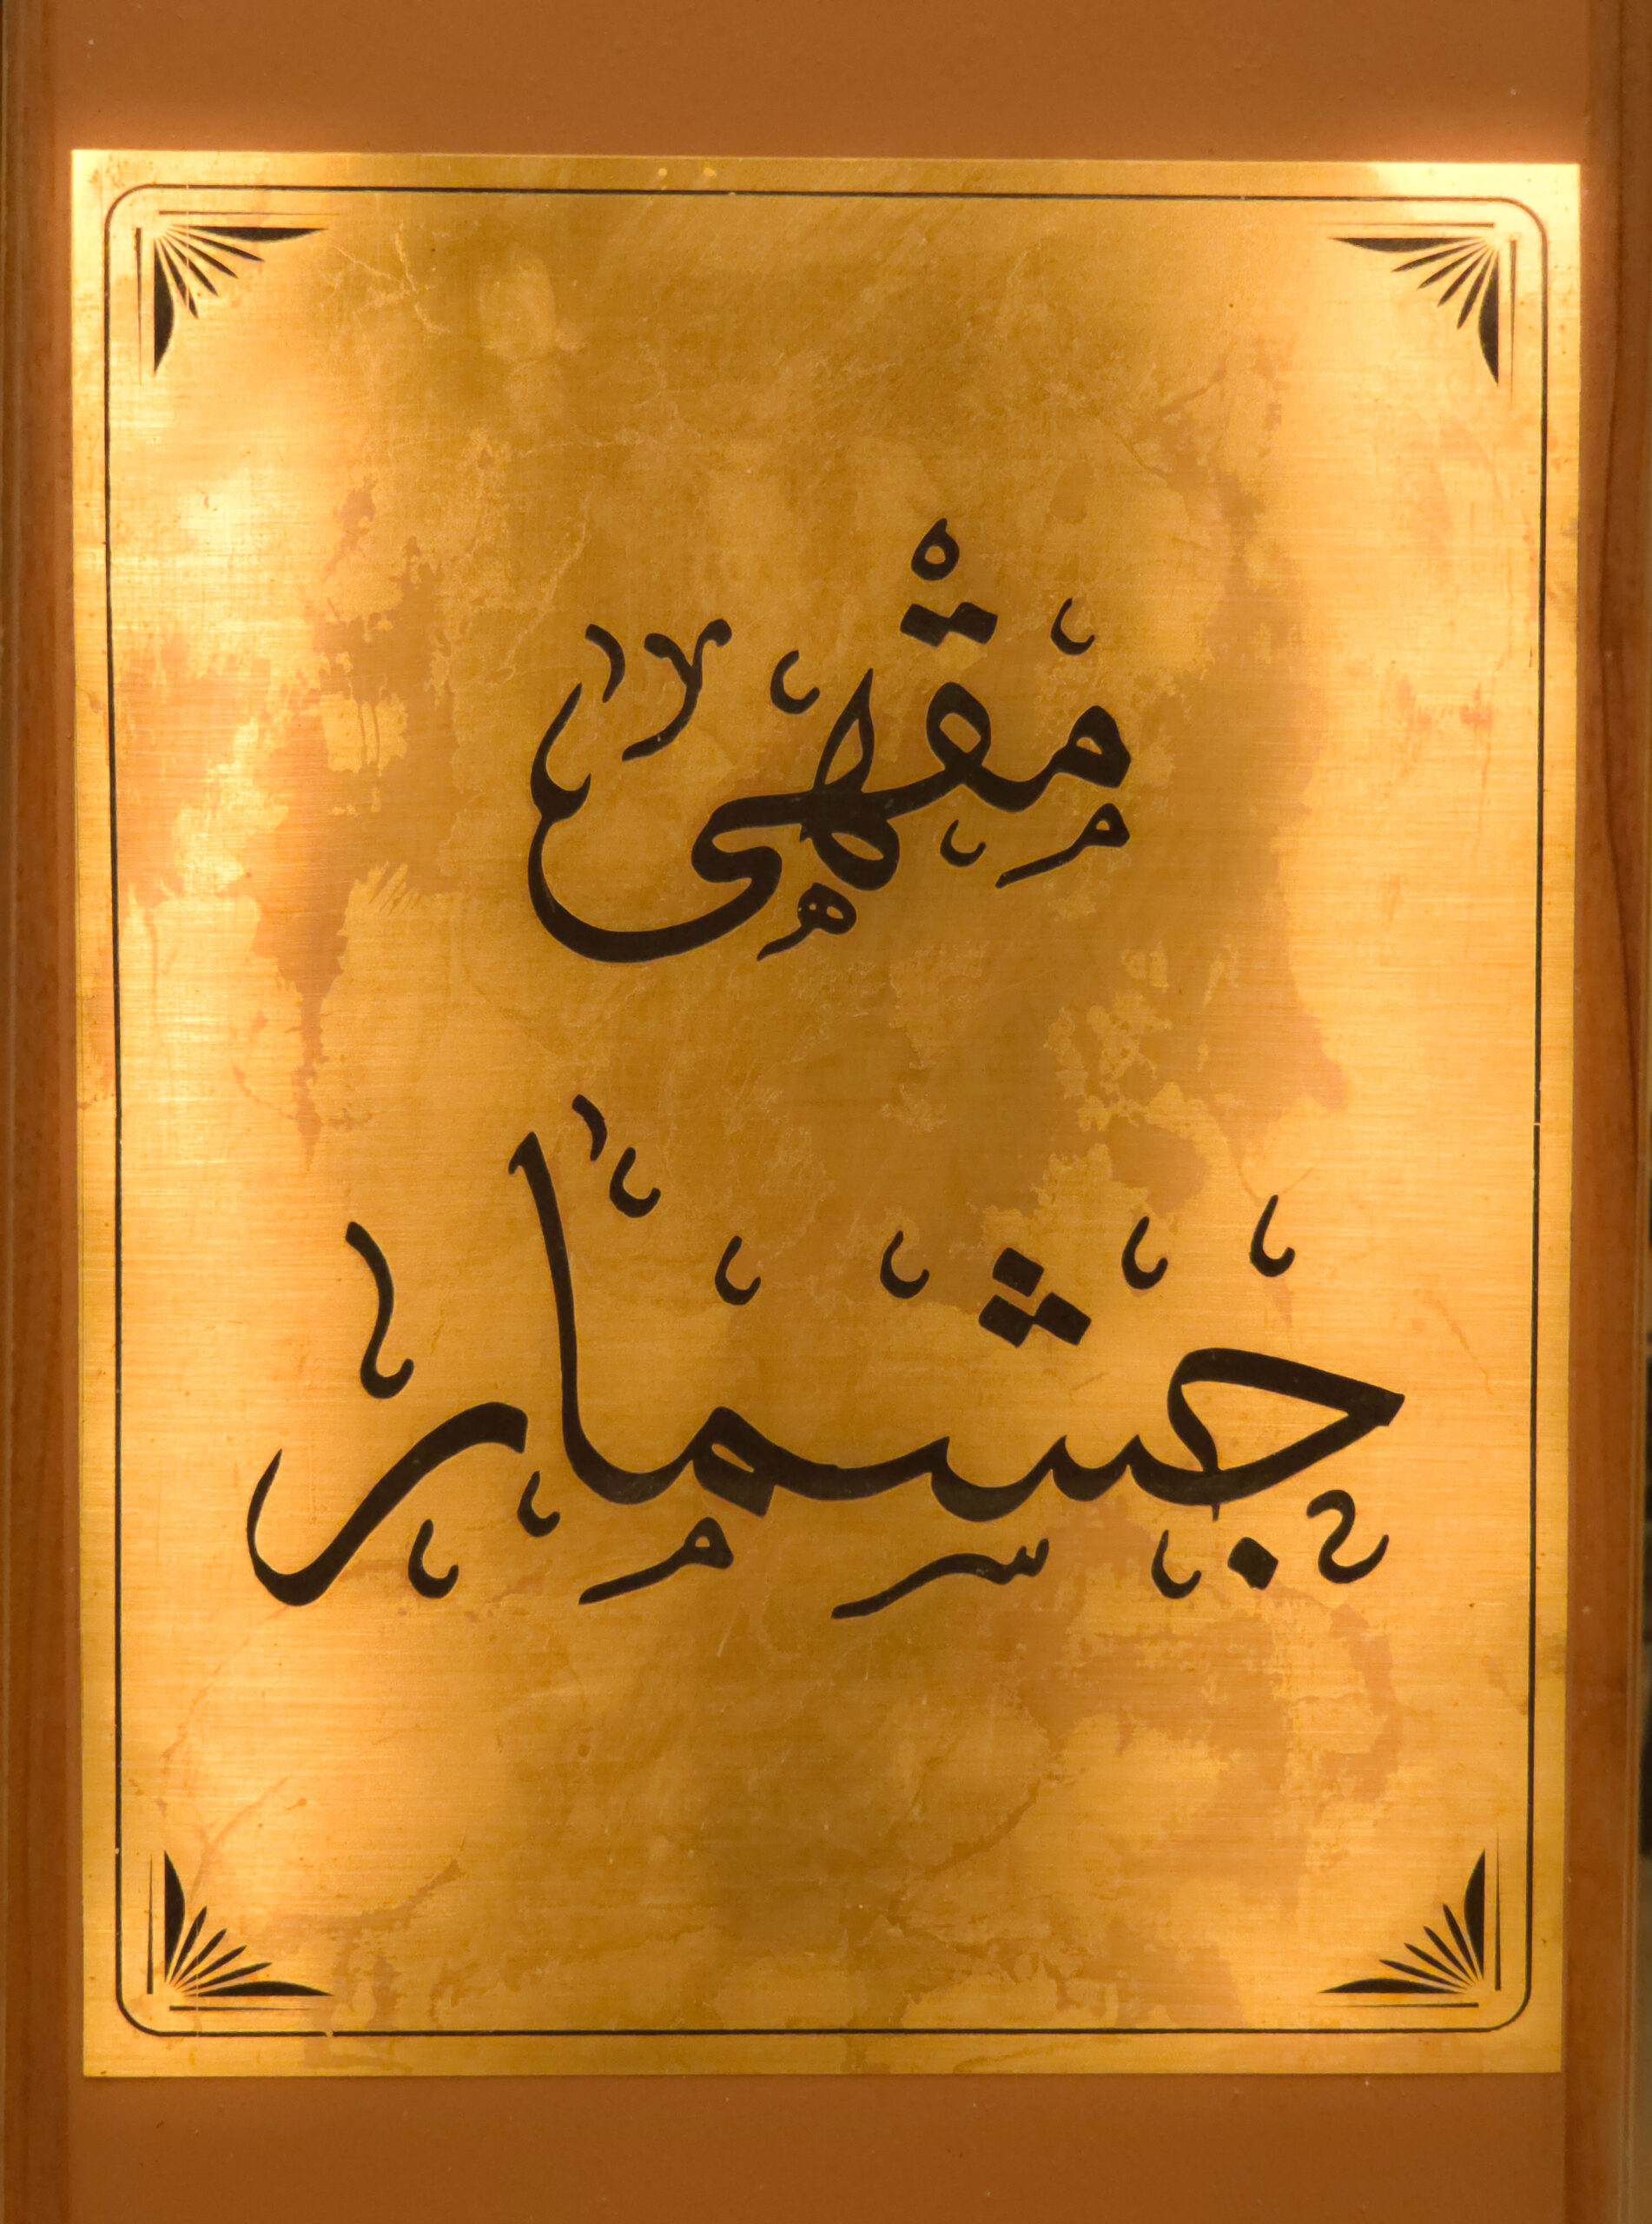 مقهى
جشمار